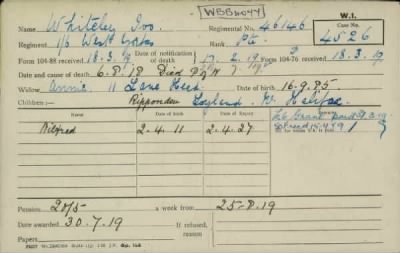 WBB110044
W.I.
Name Whiteley Ivo. Regimental No. 46146 Case No. 4526
Regiment 1/6 West Yorks Rank Pte.
Form 104-88 received 18.3.19 Date of notification of death 17.2.19 Form 104-76 received 18.3.19
Date and cause of death 6.8.18 Died P of W
Widow Annie 11 Lane Head Date of birth 16.9.85
Children:— Ripponden Soyland Nr Halifax
Date of birth Remarks
Wilfred 2-4-11 2-4-27
Pension 20/5 a week from 25-8-19
Date awarded 30.7.19 If refused, reason
Papers